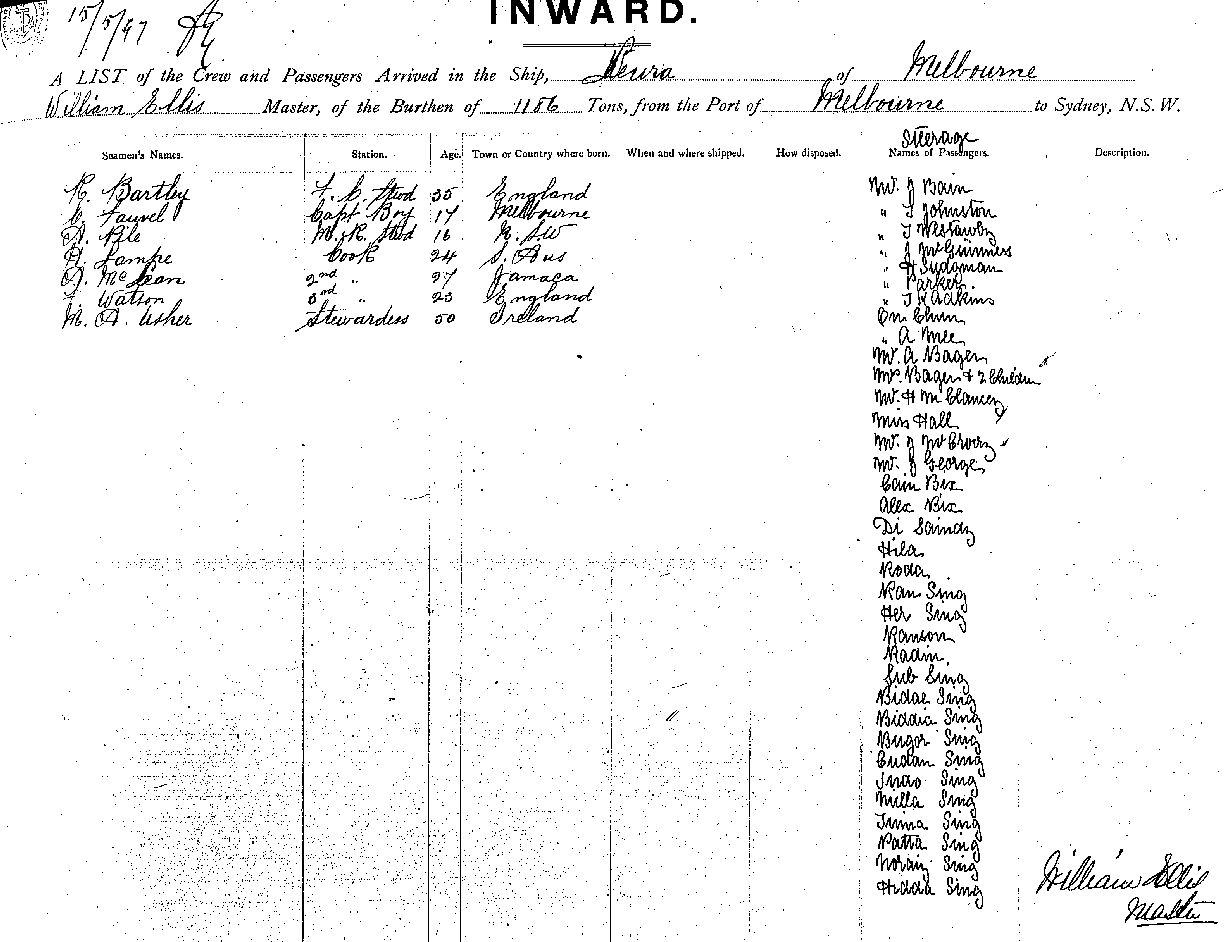 15/5/97
INWARD.
A LIST of the Crew and Passengers Arrived in the Ship, Leura of Melbourne
William Ellis Master, of the Burthen of 1186 Tons, from the Port of Melbourne to Sydney, N.S.W.
Steerage
Seamen's Names. Station. Age. Town or Country where born. When and where shipped. How disposed. Names of Passengers. Description.
R. Bartley F. C. Stwd 35 England
C. Fauvel Capt Boy 17 Melbourne
A. Pile M. R. Stwd 16 N. SW
A. Lampe Cook 24 S. Aus
A. McLean 2nd " 27 Jamaca
F. Watson 3rd " 23 England
M. A. Usher Stewardess 50 Ireland
Mr. J Bain
" T Johnston
" T Westawby
" J McGuinness
" H Sudoman
" Parker
" J W Adkins
On Chun
" A Mee
Mr. A Bager
Mrs. Bager & 2 Children
Mr. H McClancey
Miss Hall
Mr. J McCrory
Mr. J George
Cain Bix
Alex Bix
Di Saindy
Hila
Roda
Ran Sing
Her Sing
Ranson
Radin
Sub Sing
Bidae Sing
Biddia Sing
Bugor Sing
Cudan Sing
Indo Sing
Milla Sing
Jinna Sing
Patta Sing
Norain Sing
Hidda Sing
William Ellis
Master